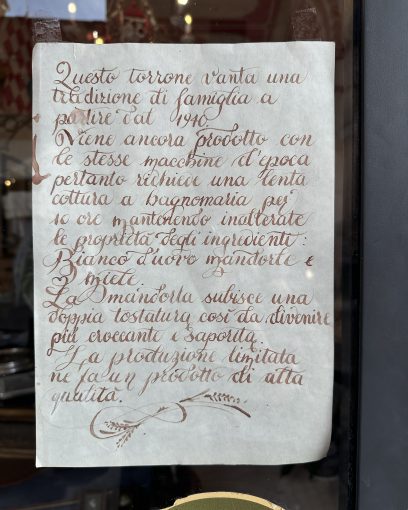 Questo torrone vanta una
tradizione di famiglia a
partire dal 1910.
Viene ancora prodotto con
le stesse macchine d'epoca
pertanto richiede una lenta
cottura a bagnomaria per
10 ore mantenendo inalterate
le proprietà degli ingredienti:
Bianco d'uovo mandorle e
miele.
La mandorla subisce una
doppia tostatura così da divenire
più croccante e saporita.
La produzione limitata
ne fa un prodotto di alta
qualità.